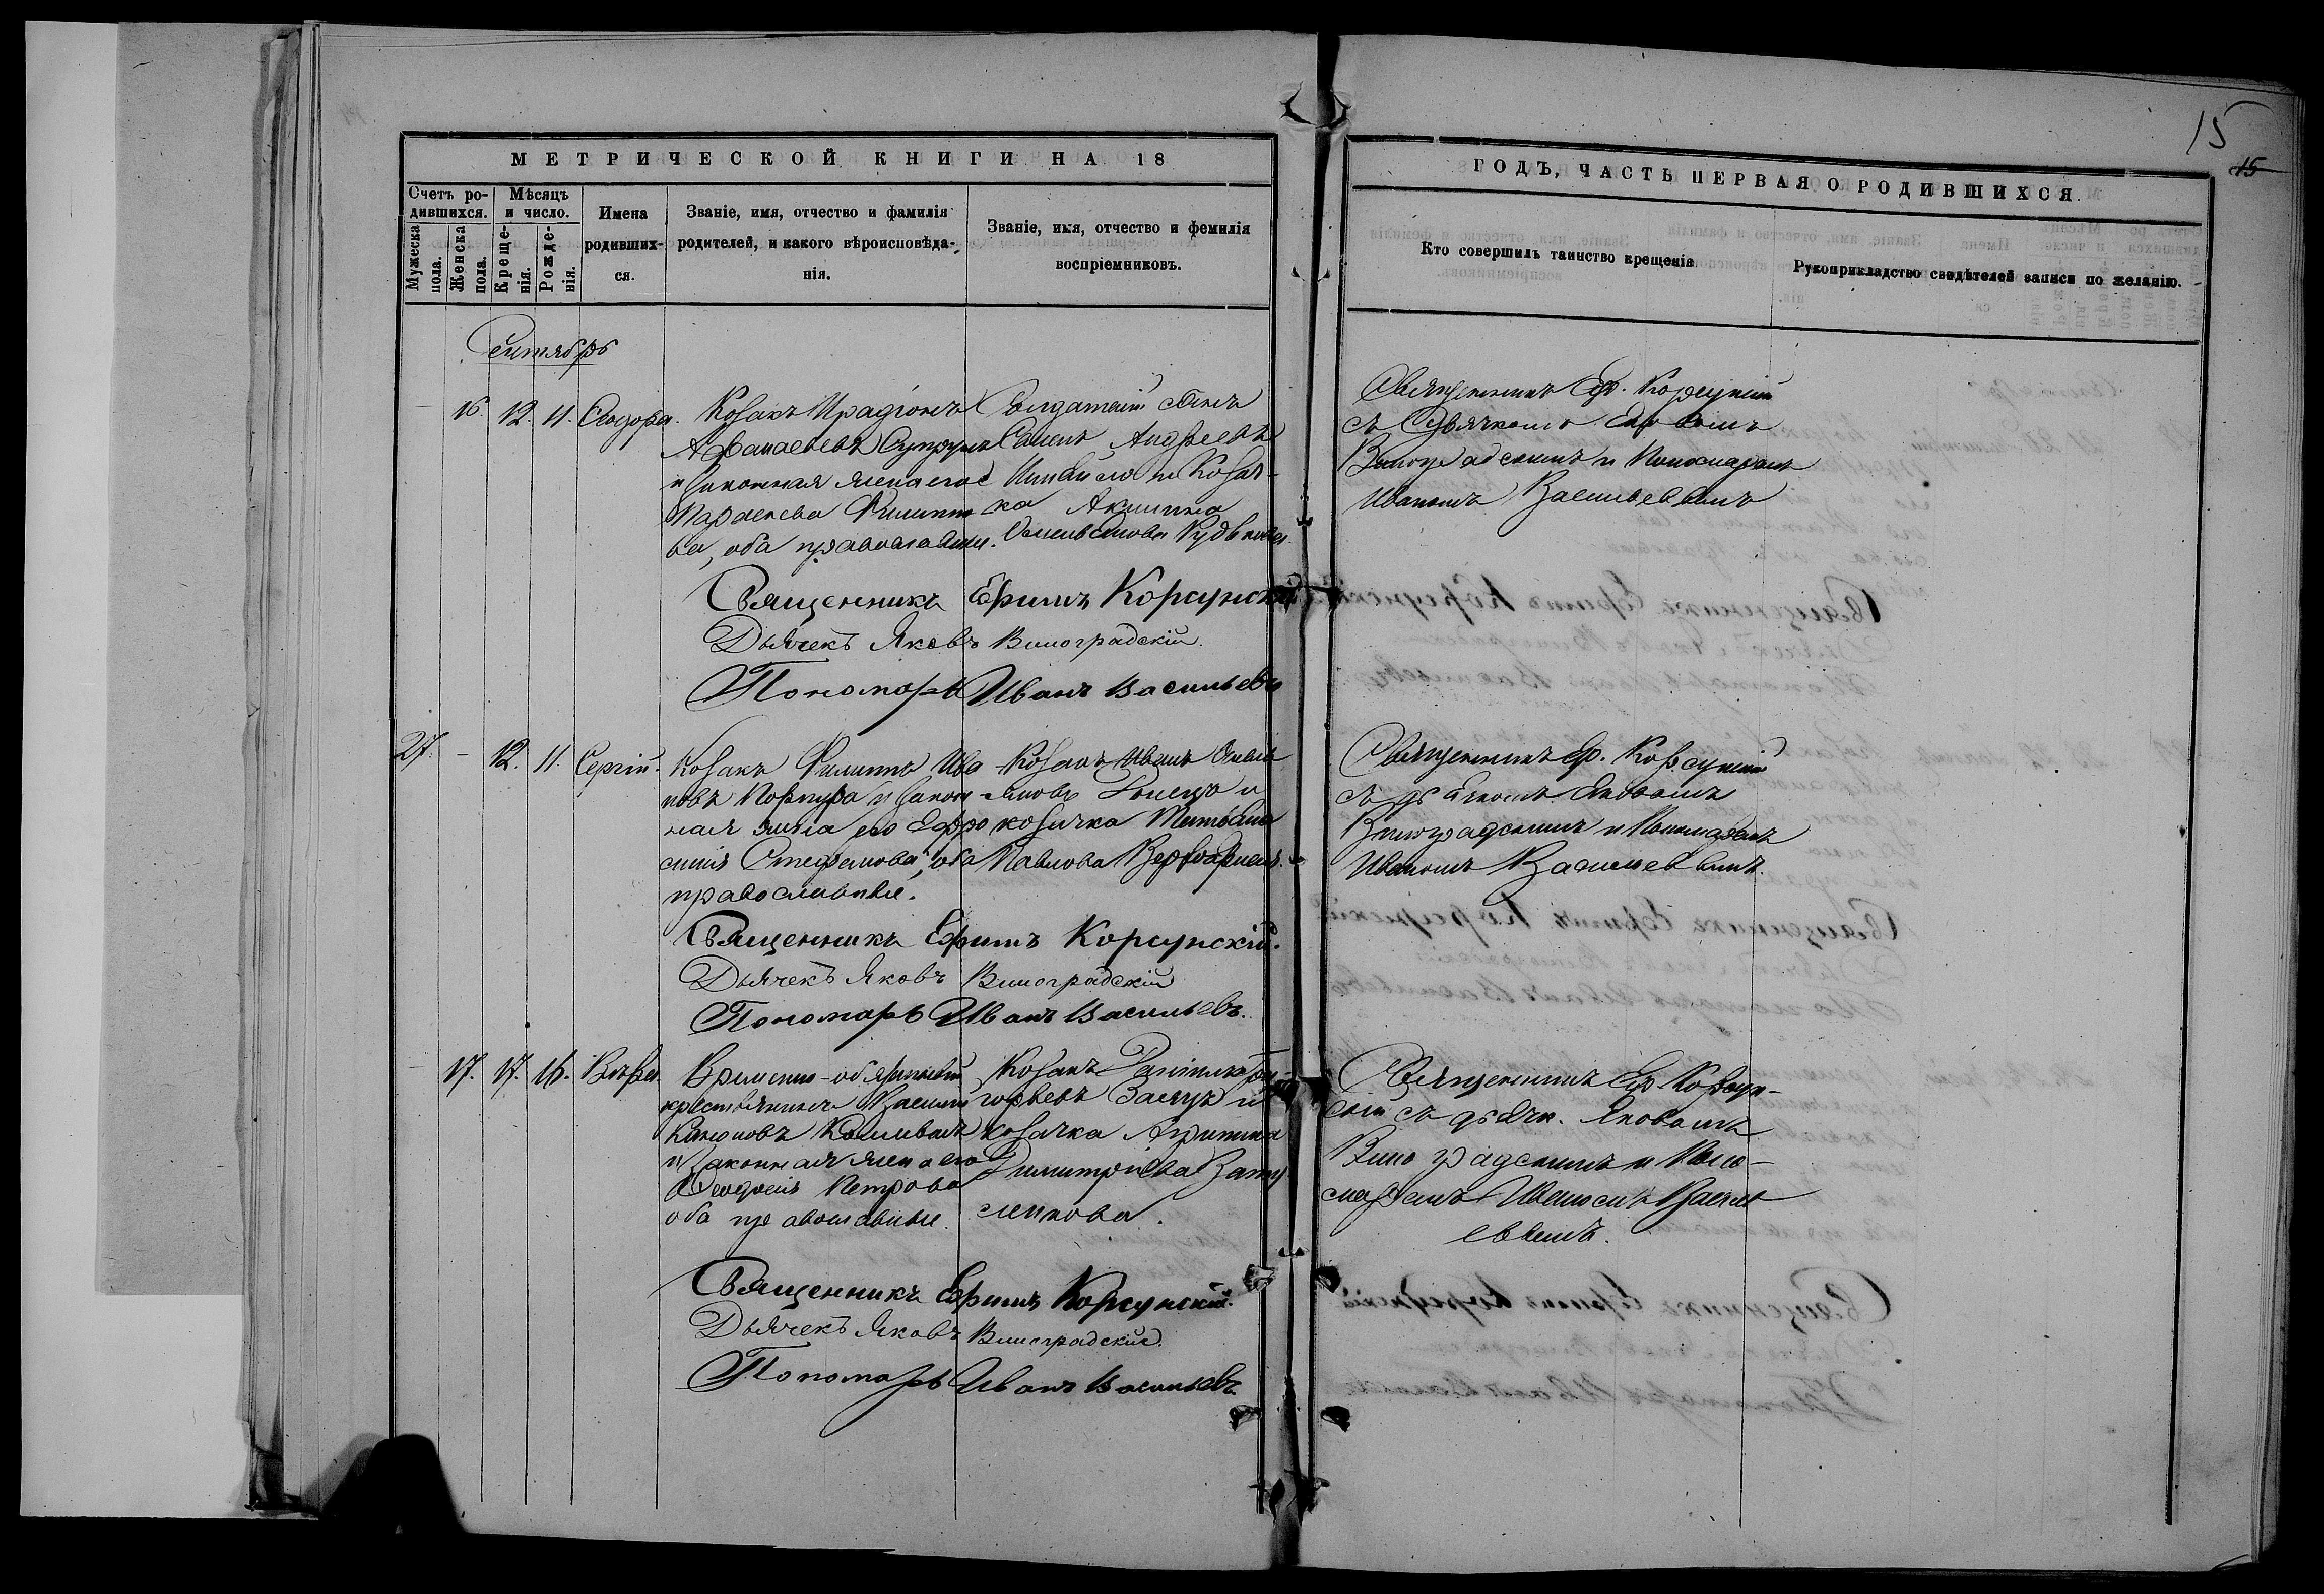 15
15
МЕТРИЧЕСКОЙ КНИГИ НА 18
ГОДЪ, ЧАСТЬ ПЕРВАЯ О РОДИВШИХСЯ.
Счетъ ро-
дившихся.
Мужеска
пола.
Женска
пола.
Мѣсяцъ
и число.
Креще-
нія.
Рожде-
нія.
Имена
родивших-
ся.
Званіе, имя, отчество и фамилія
родителей, и какого вѣроисповѣда-
нія.
Званіе, имя, отчество и фемилія
воспріемниковъ.
Кто совершилъ таинство крещенія
Рукоприкладство свидѣтелей записи по желанію.
Сентябрь
16. 12. 11. Ѳеодора.
Козакъ Ирадіонъ
и законная жена его
Филиппо
ва, оба православные.
сынъ
Андреевъ
и Козач-
ка Акилина
Священникъ Еф. Корсунскій
съ Дьячкомъ Яковомъ
Виноградскимъ и Пономаремъ
Иваномъ Васильевымъ
Священникъ Ефимъ Корсунскій
Дьячекъ Яковъ Виноградскій.
Пономарь Иванъ Васильевъ
27. - 12. 11. Сергій.
Козакъ Филиппъ Ива
новъ и закон
ная жена его Евфро
синія Стефанова, оба
православные.
Козакъ Иванъ
и
козачка Татіана
Павлова
Священникъ Еф. Корсунскій
съ дьячкомъ Яковомъ
Виноградскимъ и Пономаремъ
Иваномъ Васильевымъ.
Священникъ Ефимъ Корсунскій.
Дьячекъ Яковъ Виноградскій
Пономарь Иванъ Васильевъ.
- 17. 17. 16. Вѣра.
Временно-обязанный
крестьянинъ Василій
и законная жена его
Ѳеодосія Петрова
оба православные.
Козакъ
Заяцъ и
козачка Агрипина
Димитріева
Священникъ Еф. Корсун-
скій съ дьячк. Яковомъ
Виноградскимъ и Поно-
маремъ Иваномъ Василь
евымъ.
Священникъ Ефимъ Корсунскій.
Дьячекъ Яковъ Виноградскій.
Пономарь Иванъ Васильевъ.